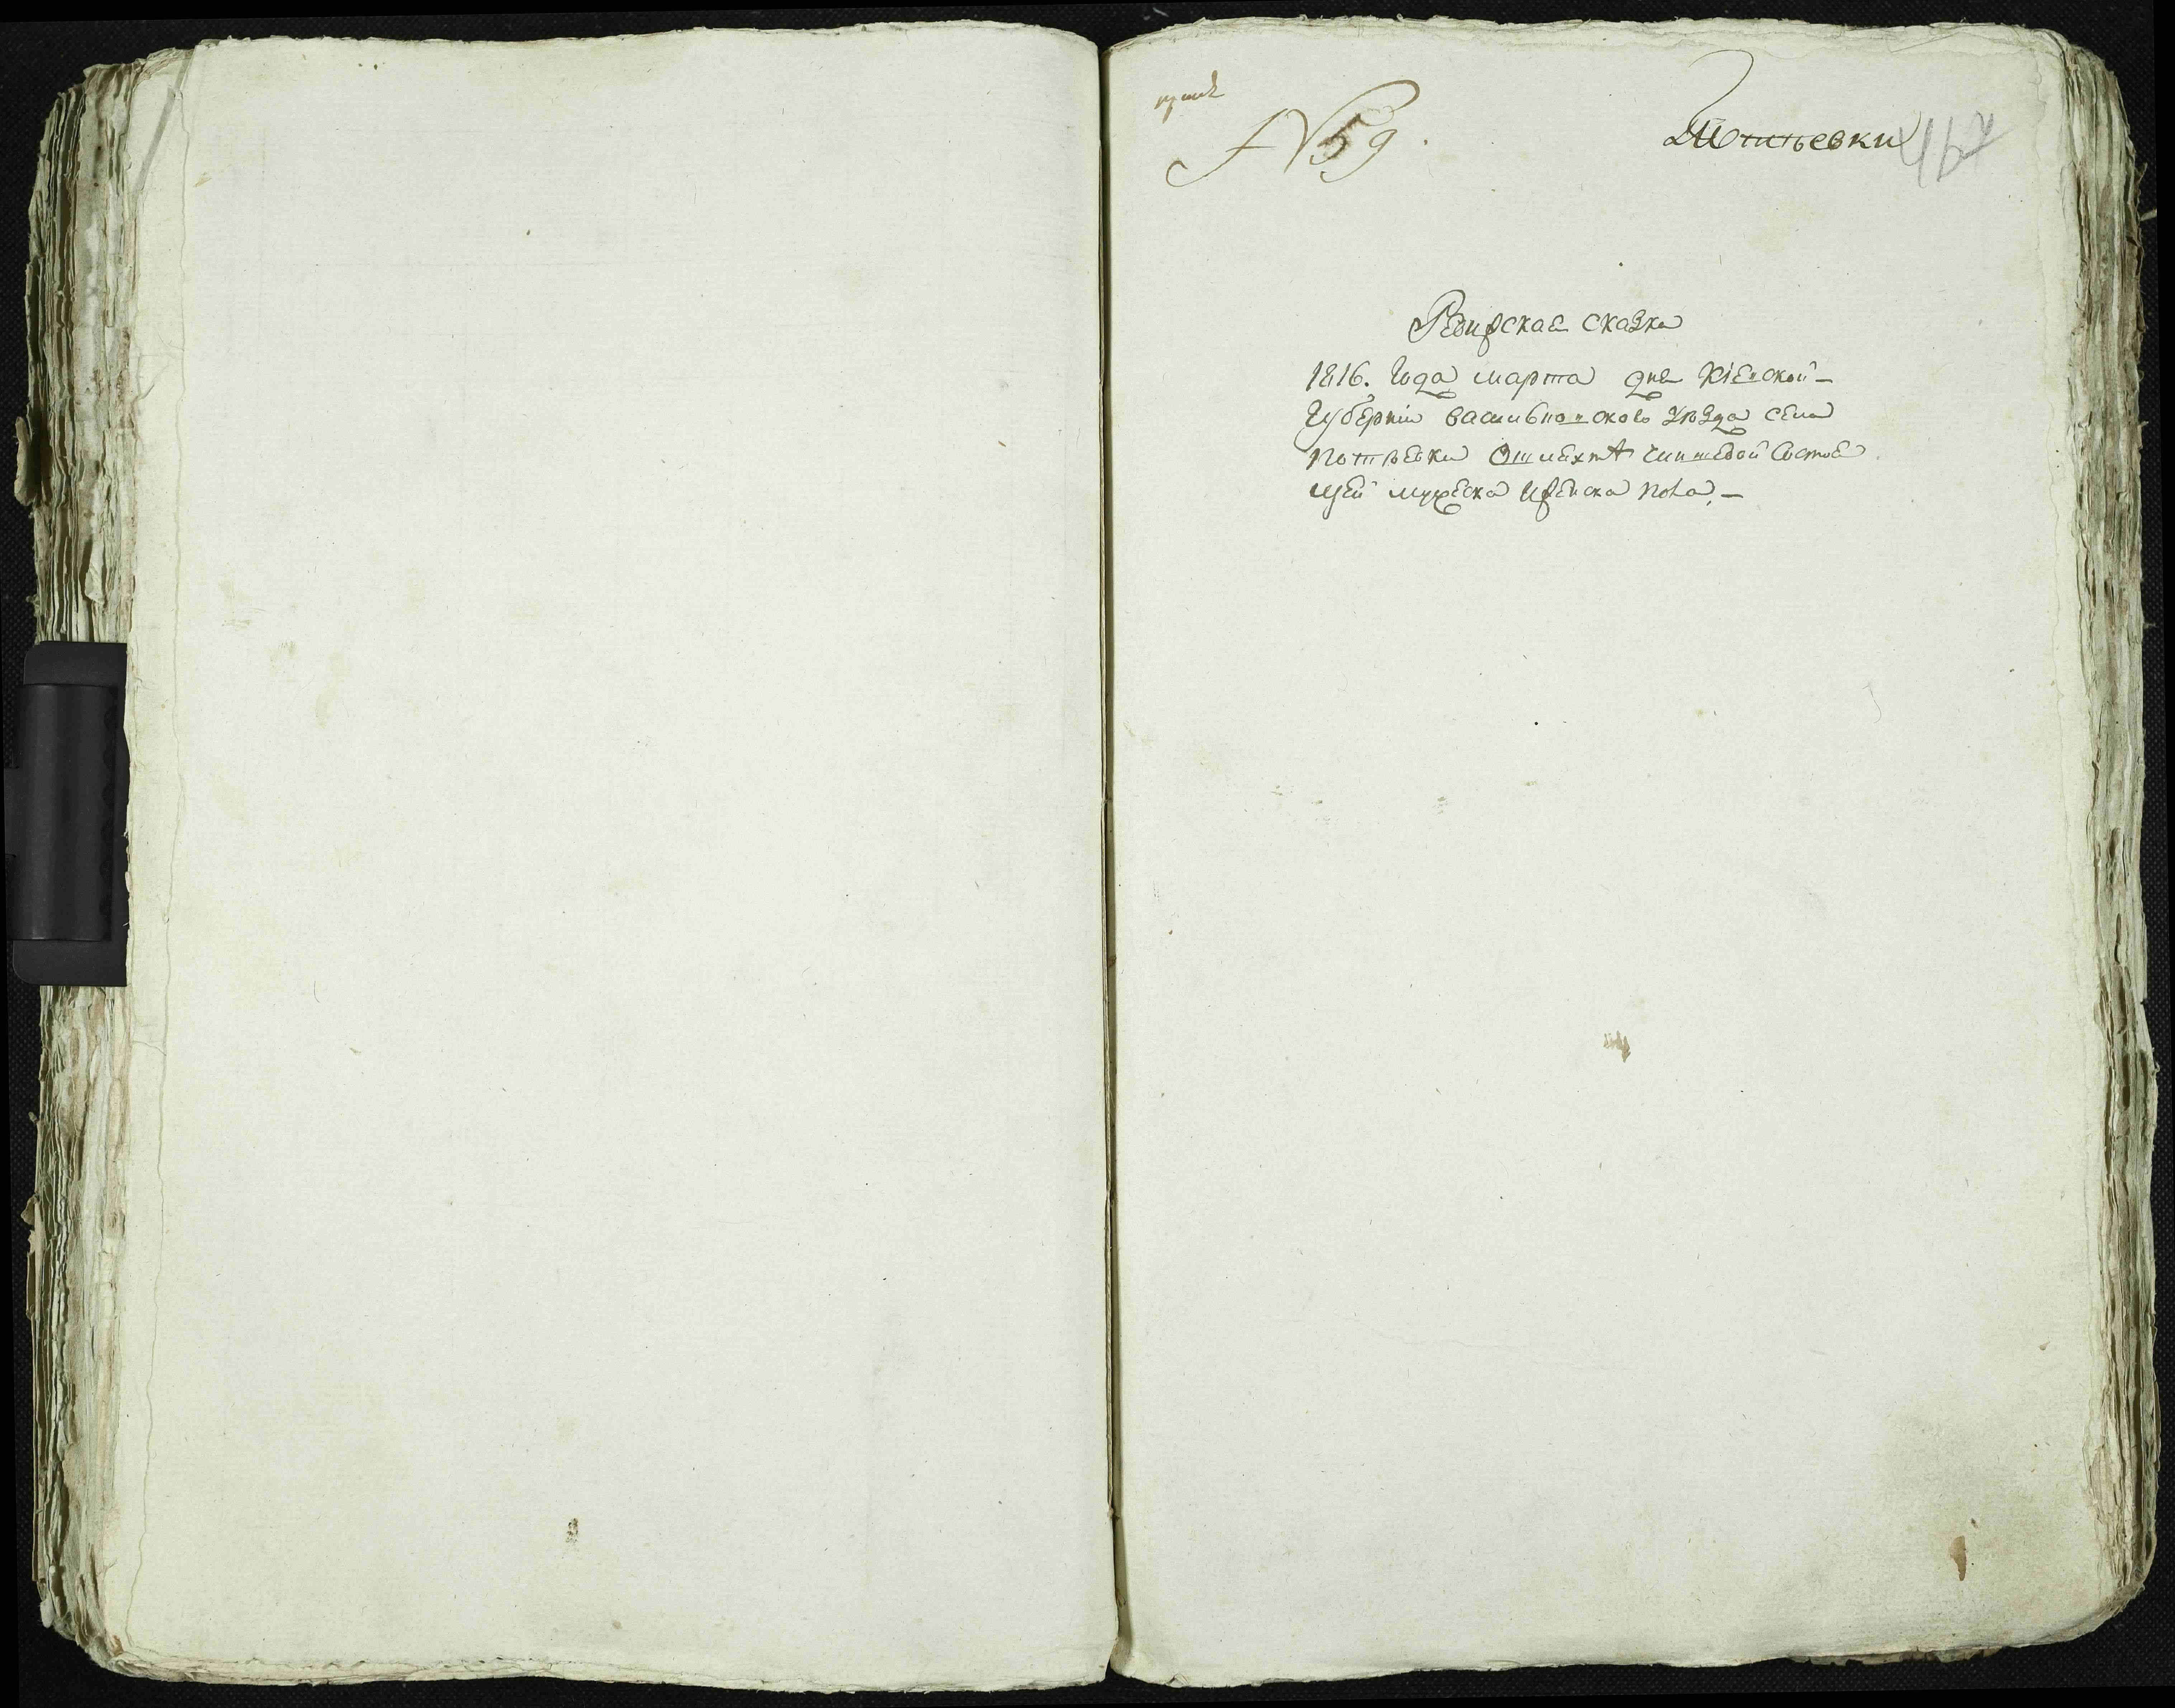 № 59.
467
Ревизская сказка
1816. Года марта дня Кіевской-
Губерніи васильковского уѣзда села
Потѣевки О шляхтѣ чиншевой состоя
щей мужеска и женска пола,-